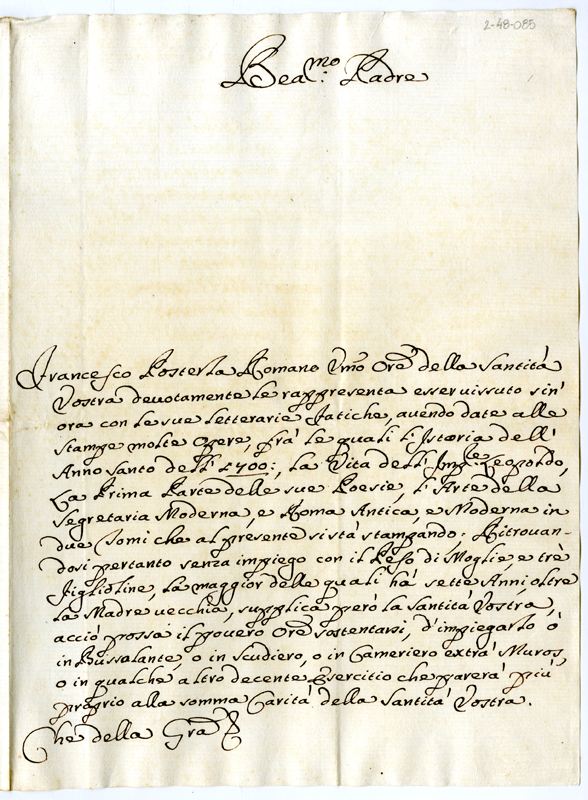 2-48-085
Bea.mo Padre
Francesco Posterla Romano Vmo Ore della Santità
Vostra devotamente le rappresenta esser vissuto sin'
ora con le sue letterarie fatiche, avendo date alle
stampe molte Opere, frà le quali l'Istoria dell'
Anno Santo dell' 1700:, la Vita dell'Imp.le Leopoldo,
La Prima Parte delle sue Poesie, l'Arte della
Segretaria Moderna, e Roma Antica, e Moderna in
due Tomi che al presente si stà stampando: Ritrouan-
dosi pertanto senza impiego con il Peso di Moglie, e trè
figlioline, la maggior delle quali hà sette Anni, oltre
la Madre vecchia, supplica però la Santità Vostra,
acciò possa il povero Ore sostentarsi, d'impiegarlo ò
in Bussolante, o in Scudiero, o in Cameriero extrà Muros,
o in qualche altro decente Esercitio che parerà più
proprio alla somma Carità della Santità Vostra.
Che della Gra